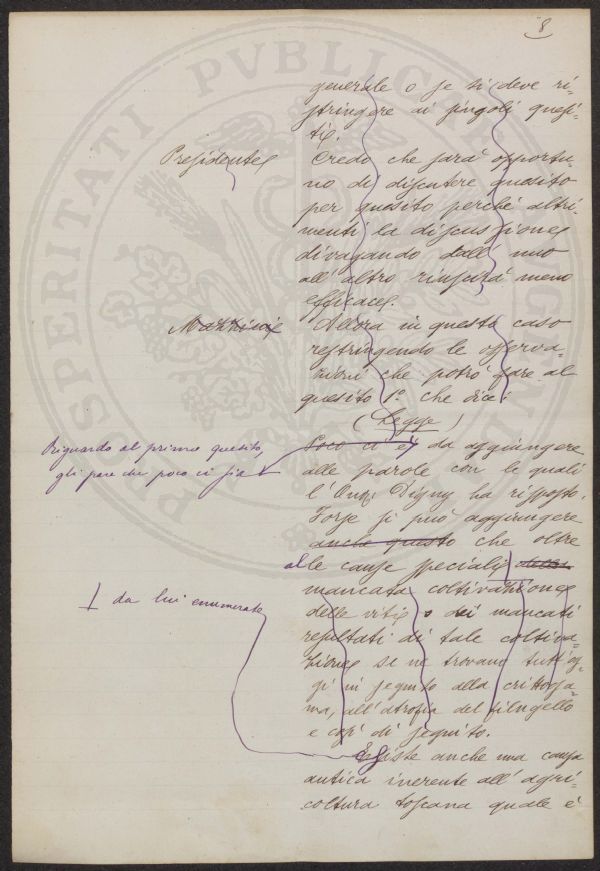 8
generale o se si deve ri-
stringere ai singoli quesi-
ti.
Presidente
Credo che sarà opportu-
no di discutere quesito
per quesito perché altri-
menti la discussione
divagando dall'uno
all'altro riuscirà meno
efficace.
Mazzini
Allora in questo caso
restringendo le osserva-
zioni che potrò fare al
quesito 1º che dice:
(Legge)
Riguardo al primo quesito,
gli pare che poco ci sia
Poco ci è da aggiungere
alle parole con le quali
l'On. Digny ha risposto.
Forse si può aggiungere
anche questo che oltre
alle cause speciali della
da lui enumerate
mancata coltivazione
delle viti o dei mancati
resultati di tale coltiva-
zione se ne trovano tutt'og-
gi in seguito alla crittoga-
ma, all'atrofia del filugello
e così di seguito.
Esiste anche una causa
antica inerente all'agri-
coltura toscana quale è
PROSPERITATI PVBLICAE AVGENDAE